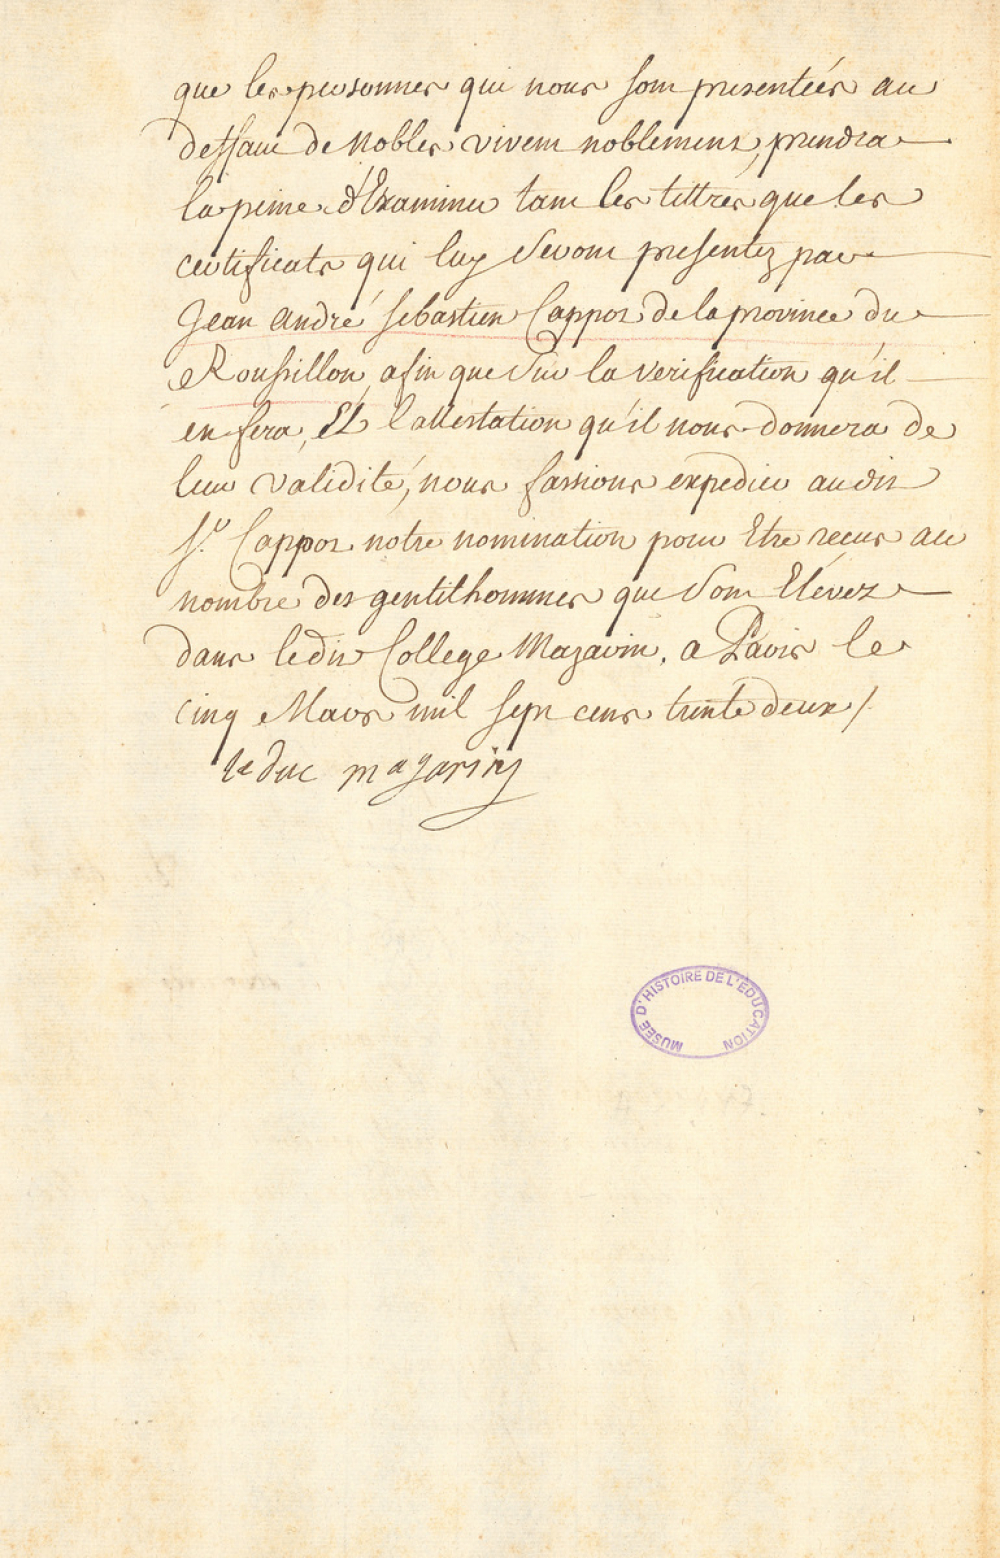 que les personnes qui nous sont presentées au
deffaut de Nobles vivent noblement, prendra
la peine d'Examiner tant les tittres que les
certificats qui luy seront presentez par
Jean André sebastien Cappot de la province du
Roussillon, afin que sur la verification qu'il
en fera, Et l'attestation qu'il nous donnera de
leur validité, nous fassions expedier audit
Sr. Cappot notre nomination pour Etre recus au
nombre des gentilhommes que sont Elevez
dans ledit College Mazarin. a Paris le
cinq Mars mil sept cens trente deux /.
le duc mazarin
MUSÉE D'HISTOIRE DE L'ÉDUCATION